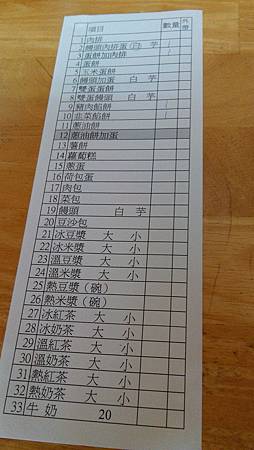 項目 數量 外帶
1 肉排
2 饅頭肉排蛋(白 芋
3 蛋餅加肉排
4 蛋餅
5 玉米蛋餅
6 饅頭加蛋 白 芋
7 雙蛋蛋餅
8 雙蛋饅頭 白 芋
9 豬肉餡餅
10 韭菜餡餅
11 蔥油餅
12 蔥油餅加蛋
13 薯餅
14 蘿蔔糕
15 蔥蛋
16 荷包蛋
17 肉包
18 菜包
19 饅頭 白 芋
20 豆沙包
21 冰豆漿 大 小
22 冰米漿 大 小
23 溫豆漿 大 小
24 溫米漿 大 小
25 熱豆漿(碗)
26 熱米漿(碗)
27 冰紅茶 大 小
28 冰奶茶 大 小
29 溫紅茶 大 小
30 溫奶茶 大 小
31 熱紅茶 大 小
32 熱奶茶 大 小
33 牛 奶 20